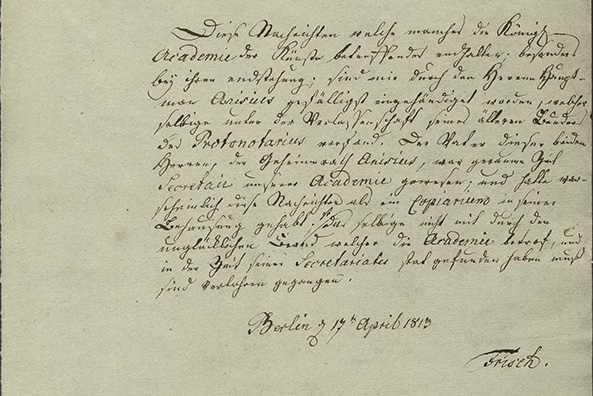 Diese Nachrichten welche manches die Königl.
Academie der Künste betreffendes endhalten, besonders
bey ihrer endstehung; sind mir durch den Herren Haupt-
man Anisius gefälligst eingehändiget worden, welcher
selbige unter der Verlassenschaft seines älteren Bruders
des Protonotarius vorfand. Der Vater dieser beiden
Herren, der Geheimrath Anisius, war geraume Zeit
Secretair unserer Academie gewesen; und hatte war-
scheinlich diese Nachrichten als ein Copiarium in seiner
Behausung gehabt: das selbige nicht mit durch den
unglücklichen Brand welcher die Academie betrof, und
in der Zeit seines Secretariates stat gefunden haben muß
sind verlohren gegangen.
Berlin d 17t April 1813
Frisch.